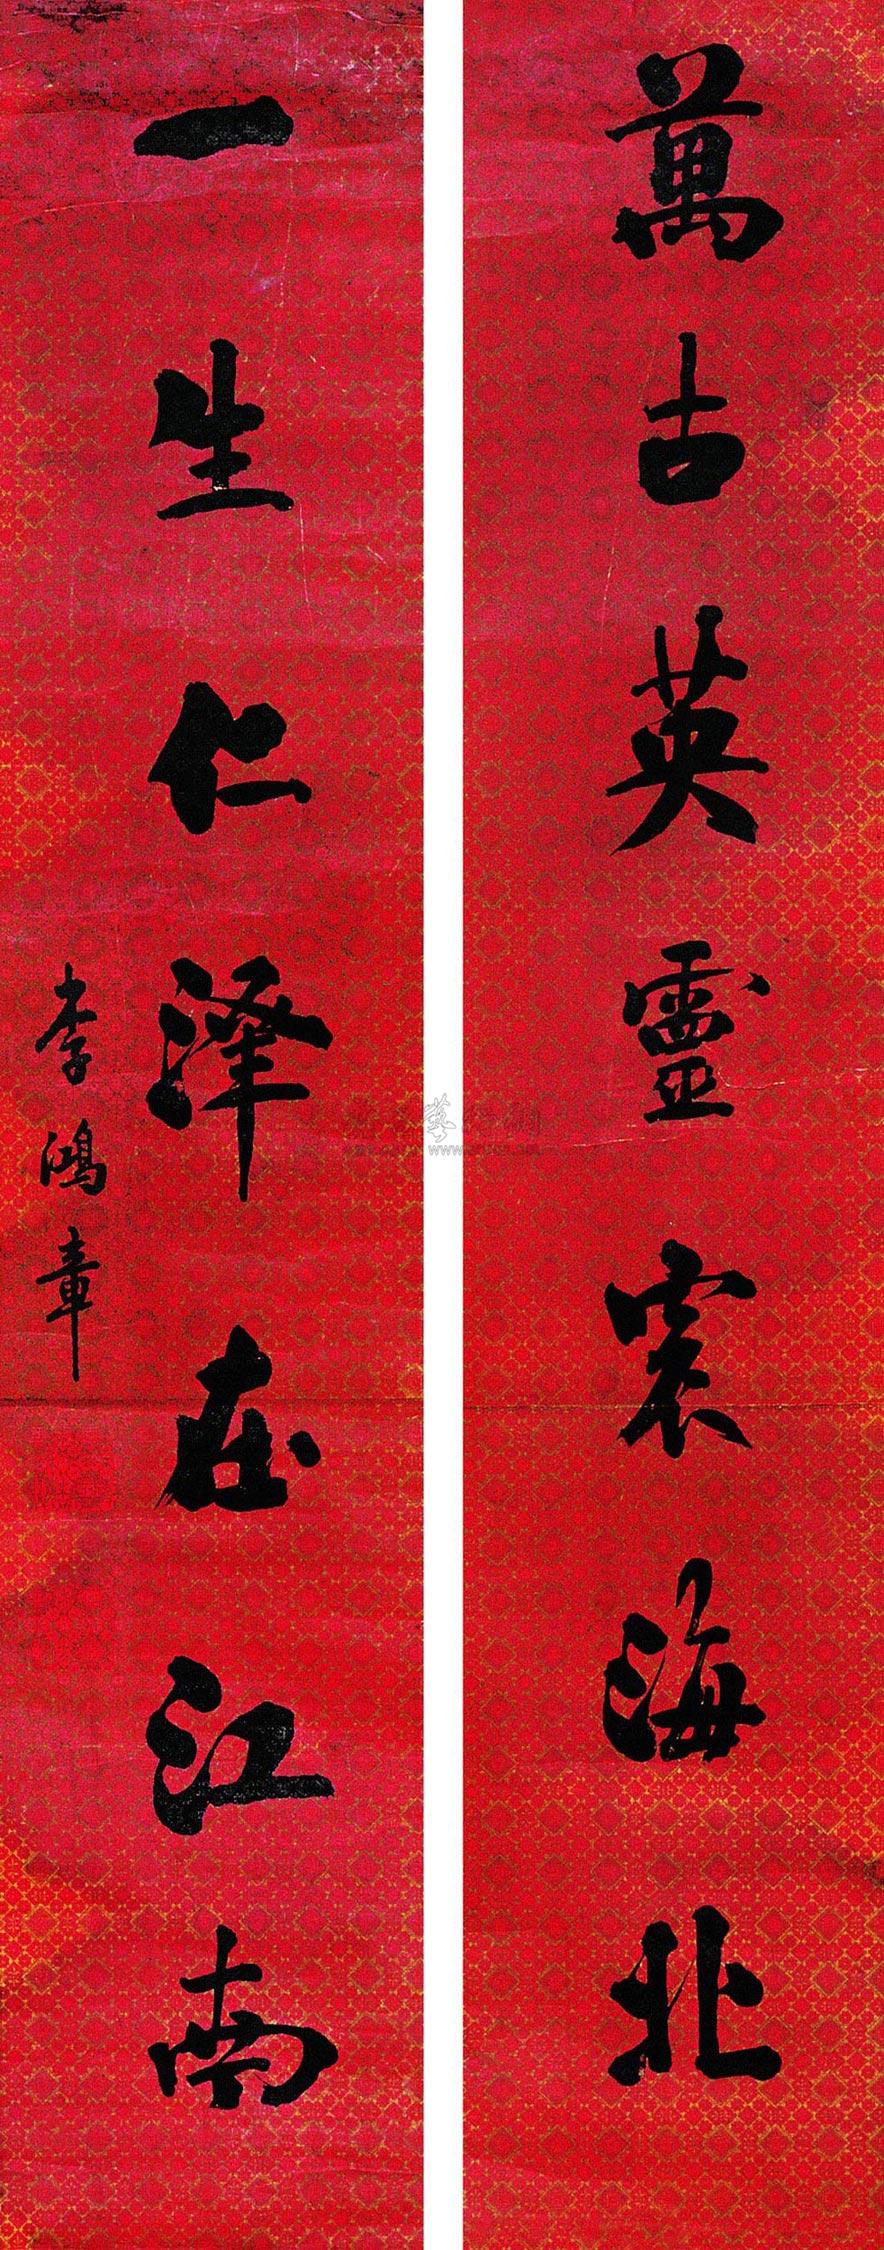 萬古英靈海北
一生仁澤在江南
李鴻章